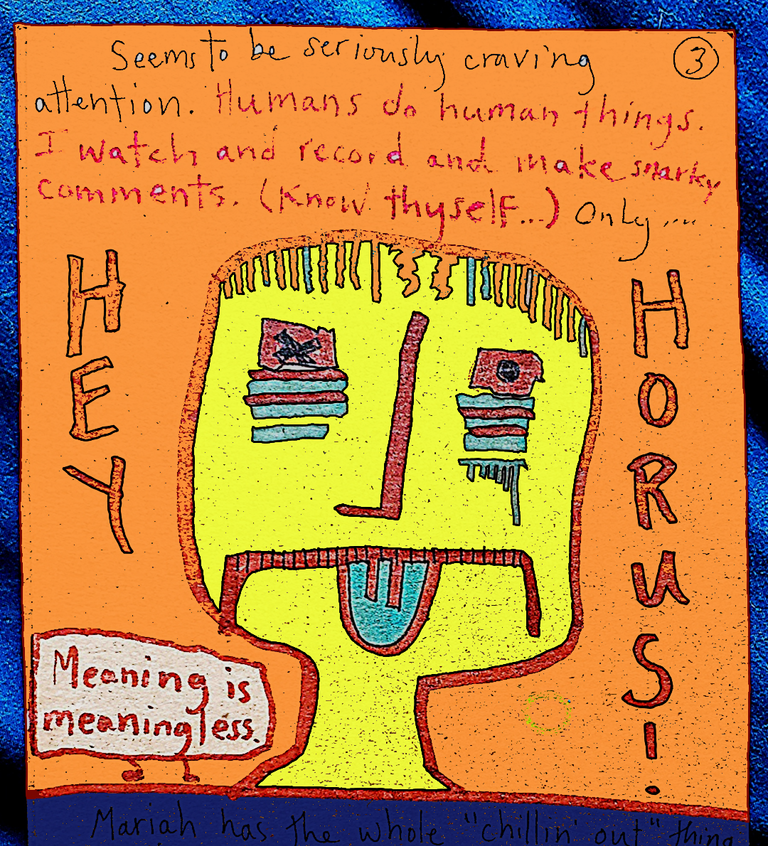 Seems to be seriously craving
③
attention. Humans do human things.
I watch and record and make snarky
comments. (Know thyself...) Only....
HEY
HORUS!
Meaning is
meaningless.
Mariah has the whole "chillin' out" thing